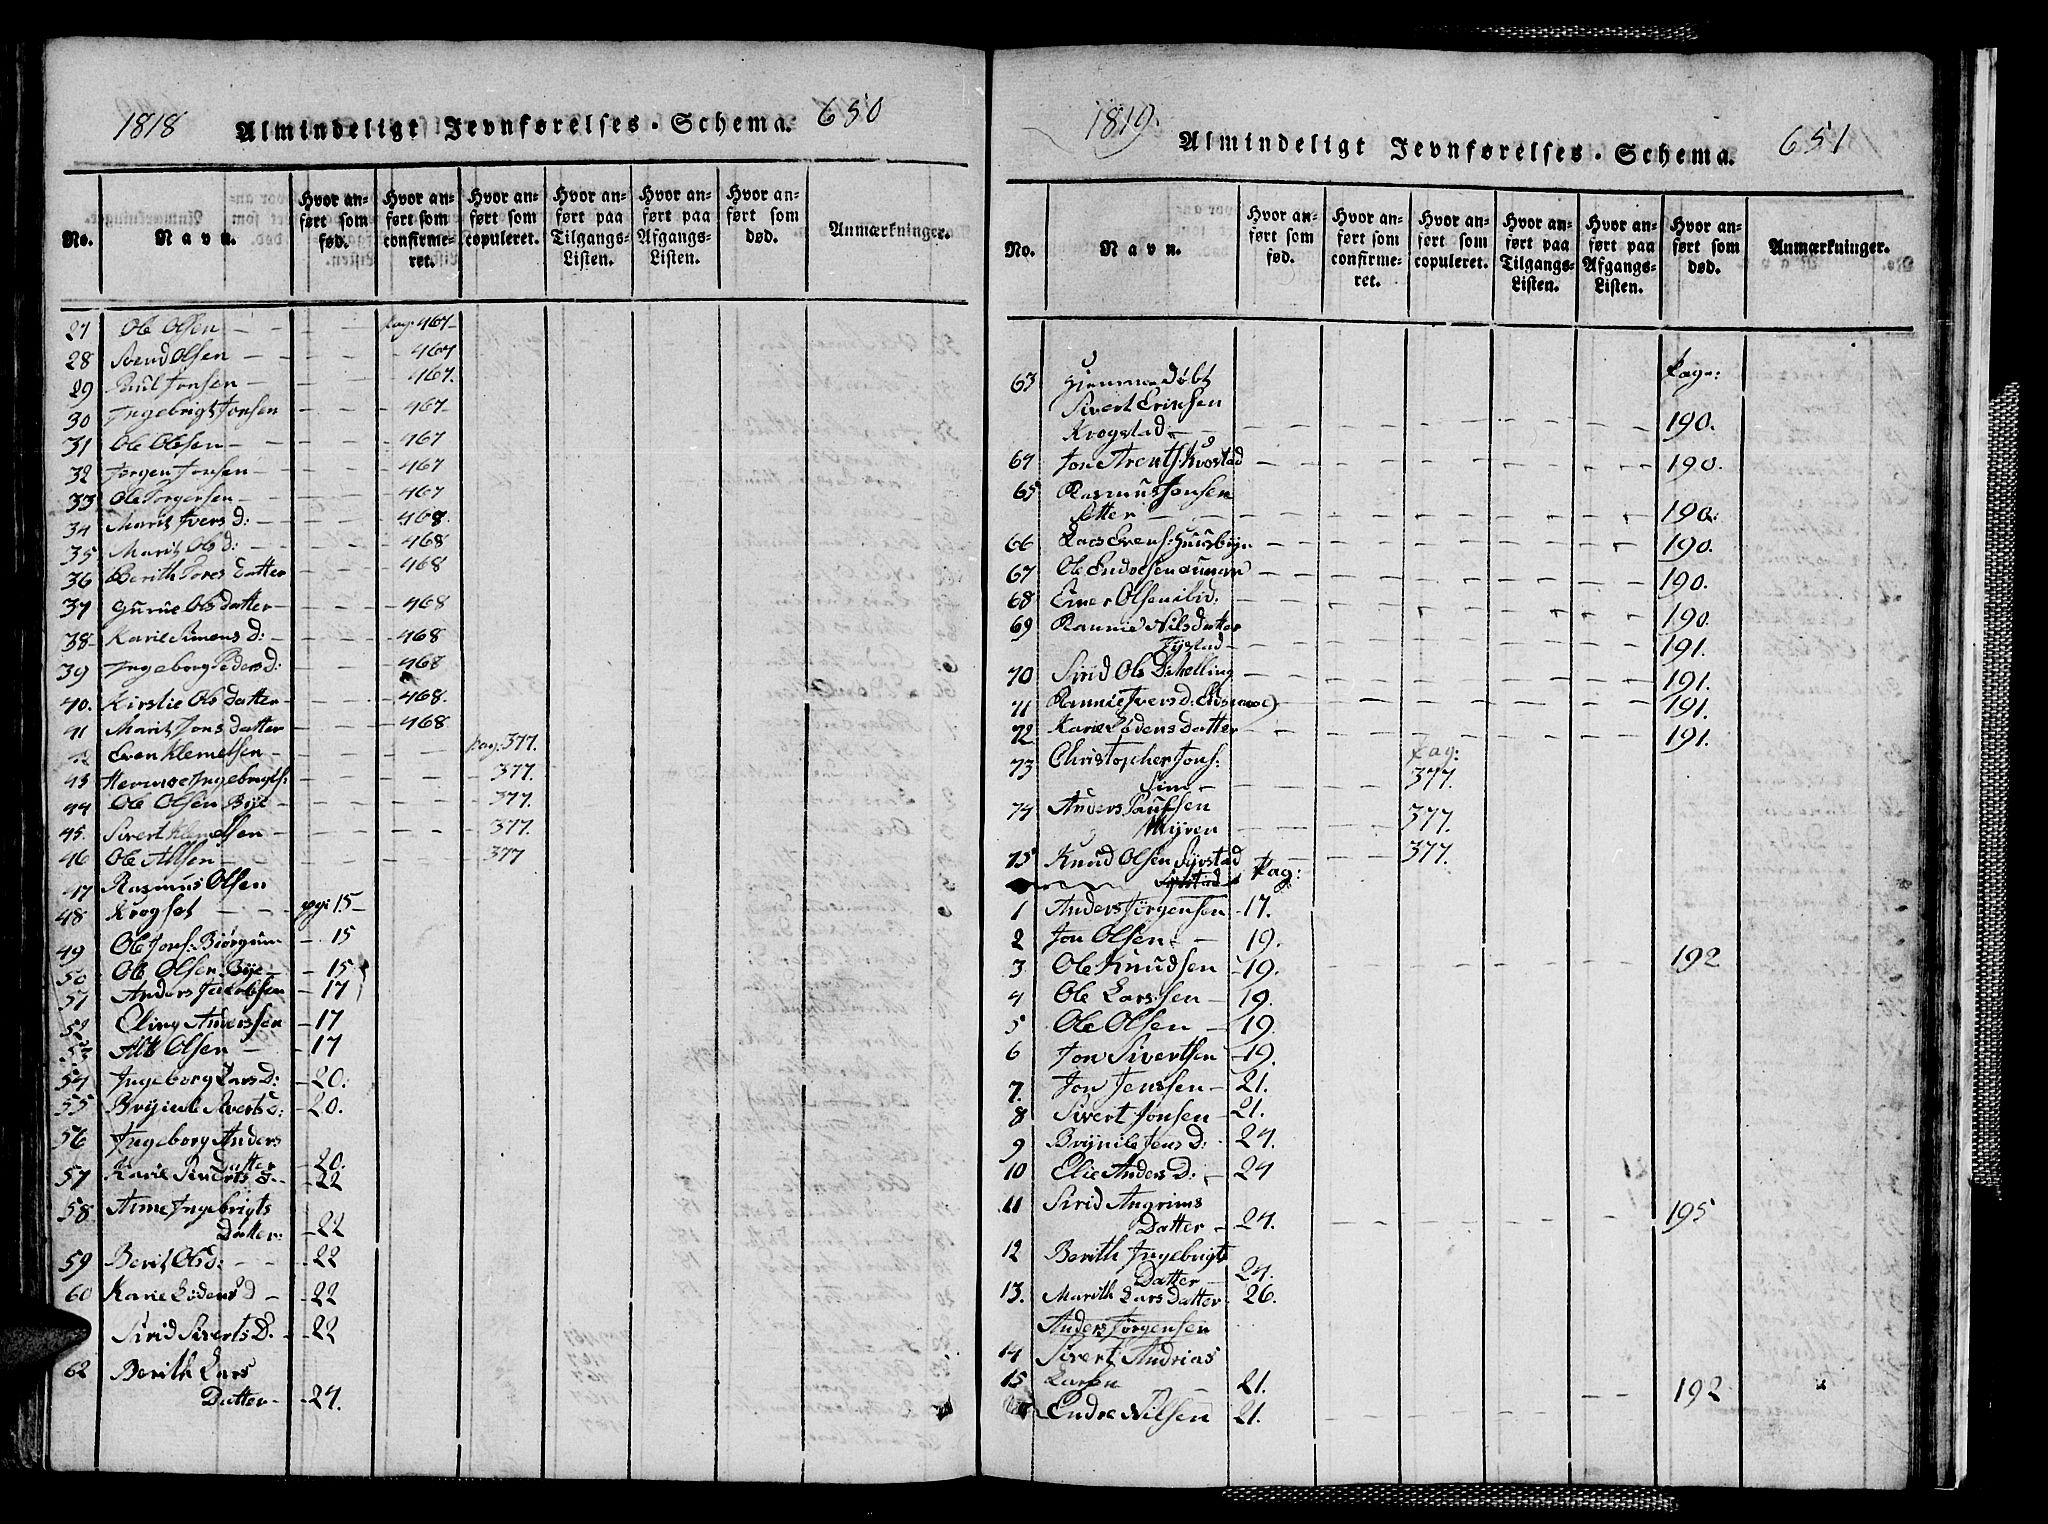 1818 Almindeligt Jevnførelses-Schema. 650
No. Navn. Hvor anført som fød. Hvor anført som confirmeret. Hvor anført som copuleret. Hvor anført paa Tilgangs-Listen. Hvor anført paa Afgangs-Listen. Hvor anført som død. Anmærkninger.
27 Ole Olsen - pag: 467
28 Svend Olsen - 467
29 Poul Jonsen - 467.
30 Ingebrigt Jonsen 467
31 Ole Olesen - 467
32 Jørgen Jonsen - 467
33 Ole Jørgensen - 467
34 Marit Ivers d: - 468.
35 Marit Ols d: - 468
36 Berith Tores datter 468
37 Gurue Ols datter - 468
38 Karie Simens d: - 468
39 Ingeborg Peders d: 468
40. Kirstie Ols datter - 468.
41 Marit Jons datter 468
42 Even Klemetsen - pag: 377.
43 Hermoe Ingebrigts: 377.
44 Ole Olsen Bye - 377.
45. Sivert Klemetsen - 377.
46 Ole Allsen - 377
47 Rasmus Olsen
48 Krogset - pag: 15
49 Ole Jons: Biørgum - 15
50 Ole Olsen Bye - 15
51 Anders Jacobsen - 17
52 Eling Andersen - 17
53 Alle Olsen - 17
54 Ingeborg Lars D: - 20.
55 Brynild Siverts d: - 20.
56 Ingeborg Anders
Datter - 20.
57 Karie Siverts d - 22
58 Anne Ingebrigts
Datter: - 22
59 Berit Ols d: - 22
60 Karie Lodens d - 22
Sirid Siverts D. - 22
62 Berith Lars
Datter - 24.
1819. Almindeligt Jevnførelses-Schema. 651
No. Navn. Hvor anført som fød. Hvor anført som confirmeret. Hvor anført som copuleret. Hvor anført paa Tilgangs-Listen. Hvor anført paa Afgangs-Listen. Hvor anført som død. Anmærkninger.
63 Hjemmedøbt pag:
Sivert Eriksen
Krogstad - 190.
64 Jon Arents: Kvostad 190.
65 Rasmus Jonsen
Sætter - 190.
66 Lars Evens: Huusbyn 190.
67 Ole Endresen 190.
68 Ener Olsen ibid: 190.
69 Rannie Nilsdatter
Tystad - 191.
70 Sirid Ols D: Melling 191.
71 Rannie Ivers d: 191.
72 Karie Lodens datter 191.
73 Christopher Jons: pag:
377.
74 Anders Paulsen 377.
Myren
75 Knud Olsen Syvstad 377.
Syvstad pag:
1 Anders Jørgensen - 17.
2 Jon Olsen - 19.
3 Ole Knudsen - 19. 192
4 Ole Larssen - 19.
5 Ole Olsen - 19.
6 Jon Sivertsen - 19.
7. Jon Jenssen - 21.
8 Sivert Jonsen - 21.
9 Brynild Jens D: 24.
10 Elie Anders D: - 24
11 Sirid Angrims
Datter - 24. 195
12 Berith Ingebrigts
Datter - 24.
13. Marith Lars datter 26.
Anders Jørgensen
14 Sivert Andrias
15 Larsen - 21. 192
Endre Nilsen 21.